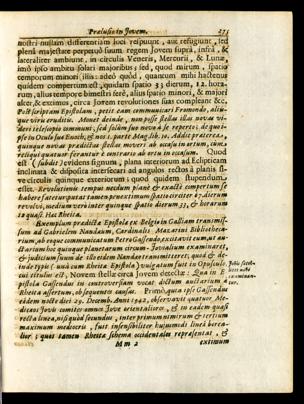 Prælusio in Jovem. 275
nostri nullam differentiam loci respiunt, aut refugiunt, sed
plena majestate perpetuò suum regem Jovem supra, infra, &
lateraliter ambiunt, in circulis Veneris, Mercurii, & Lunæ,
imò ipso ambitu solari majoribus: sed, quod mirum, spatio
temporum minori illis: adeò quòd, quantum mihi hactenus
quidem compertum est, quidam spatio 33 dierum, 12. ho-
rum, alius tempore bimestri ferè, alius spatio minori, & majori
alter, & eximus, circa Jovem revolutiones suas compleant &c.
Post scriptam Epistolam, petit eam communicari Fromondo, aliis-
que viris eruditis. Monet deinde, non posse stellas illas novas vi-
deri telescopio communi; sed solùm suo novo à se reperto; de quo i-
pse in Oculo suo Enoch, & nos 1. parte Mag. lib. 10. Addit præterea,
quinque novas prædictas stellas moveri ab occasu in ortum, cùm
reliquæ quatuor ferantur è contrario ab ortu in occasum. Quod
est (subdit) evidens signum, plana interiorum ad Eclipticam
inclinata & disposita intersecari ad angulos rectos à planis si-
ve circulis quinque exteriorum: quod quidem stupendum
est. Revolutionis tempus necdum planè & exactè compertum se
habere fatetur: putat tamen proximum spatio circiter 67. dierum
revolvi, medium verò inter quinque spatio dierum 33. & horarum
12 quasi. Hæc Rheita.
Exemplum prædictæ Epistolæ ex Belgio in Galliam transmis-
sum ad Gabrielem Naudæum, Cardinalis Mazarini Bibliotheca-
rium, ab eoque communicatum Petro Gassendo, excitavit eum, ut au-
ctarium hoc quinque planetarum circum-Jovialium examinaret,
& judicium suum de illis eidem Naudæo transmitteret; quod & de-
inde typis (unà cum Rheitæ Epistola) vulgatum fuit in Opusculo,
cui titulus est, Novem stellæ circa Jovem detectæ: Qua in E-
pistola Gassendus in controversiam vocat dictum auctarium à
Rheita assertum, ob sequentes causas. Primò, quia ipse Gassendus
eadem nocte diei 29. Decemb. Anni 1642. observavit quatuor Me-
dicæos Jovis comites omnes Jove orientaliores, & in eadem quasi
recta linea, nisi quòd secundus, inter primum minimum & tertium
maximum mediocris, fuit insensibiliter hujusmodi linea borea-
lior; quos tamen Rheitæ schema occidentales repræsentat, &
Mm 2
extimum